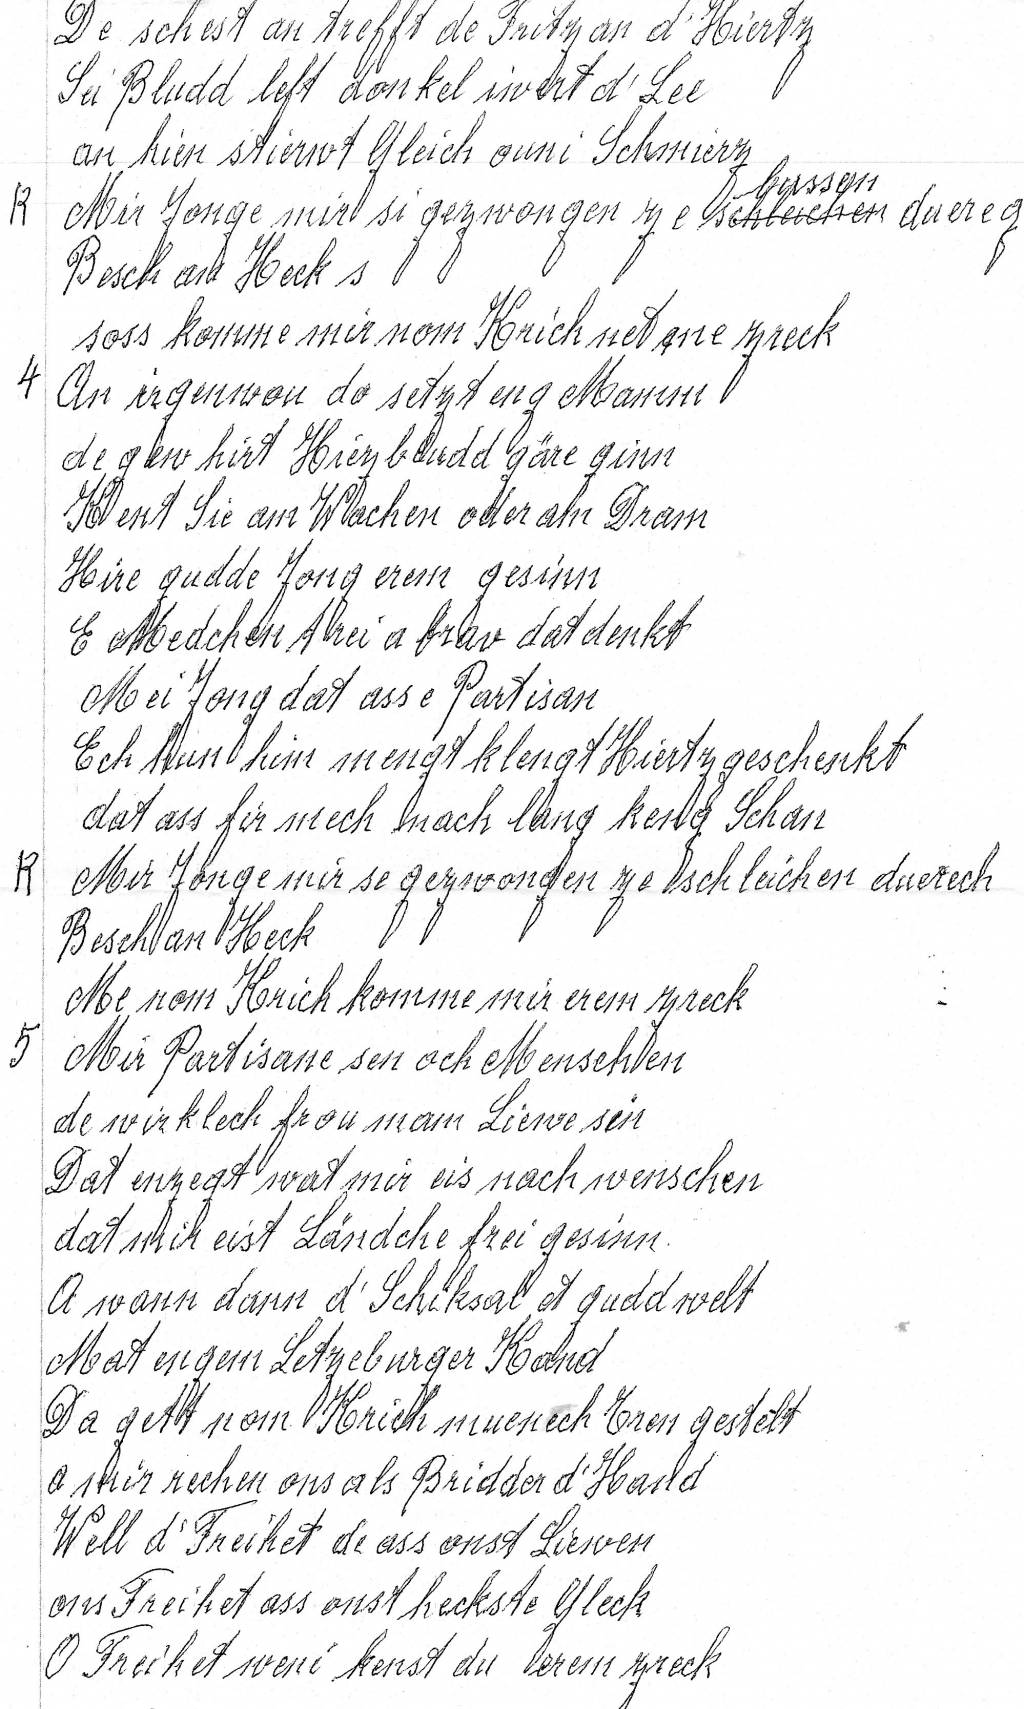 De schest an trefft de Fritz an d'Hiertz
Sei Bludd left donkel iwert d'Lee
an hien stierwt Gleich ouni Schmierz
bussen
R Mir Jonge mir si gezwongen ze schleichen duereg
Besch an Heck s
soss komme mir nom Krich net me zreck
4 An irgenwou do setzt eng Mamm
de gew hirt Hierzbludd gäre ginn
Kent Sie am Wachen oder am Dram
Hire gudde Jong erem gesinn
E Medchen trei a brav dat denkt
Mei Jong dat ass e Partisan
Ech hun him mengt klengt Hiertz geschenkt
dat ass fir mech nach lang keng Schan
R Mir Jonge mir se gezwongen ze schleichen duerech
Besch an Heck
Me nom Krich komme mir erem zreck
5 Mir Partisane sen och Menschen
de wirklech frou mam Liewe sein
Dat enzegt wat mir eis nach wenschen
dat mir eist Ländche frei gesinn.
A wann dann d'Schiksal et gudd welt
Mat engem Letzeburger Kand
Da gett nom Krich muenech Eren gestelt
a mir rechen ons als Bridder d'Hand
Well d'Freihet de ass onst Liewen
ons Freihet ass onst heckste Gleck
O Freihet weni kenst du erem zreck